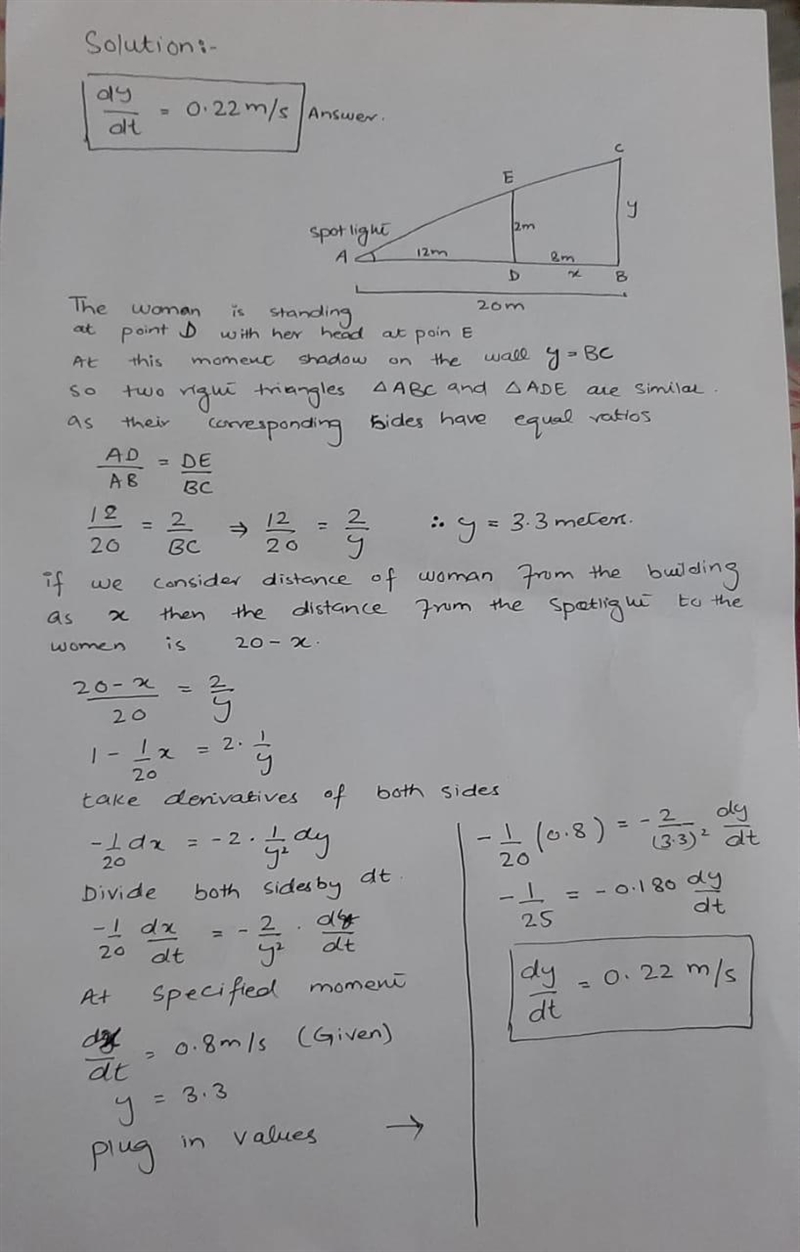 Solution:-
dy/dt = 0.22 m/s Answer.
C
E
y
2m
spotlight
A
12m
8m
D
x
B
20m
The woman is standing
at point D with her head at poin E
At this moment shadow on the wall y = BC
so two right triangles △ABC and △ADE are similar.
as their corresponding sides have equal ratios
AD/AB = DE/BC
12/20 = 2/BC ⇒ 12/20 = 2/y ∴ y = 3.3 meters.
if we consider distance of woman from the building
as x then the distance from the spotlight to the
women is 20 - x.
20-x/20 = 2/y
1 - 1/20 x = 2 · 1/y
take derivatives of both sides
-1/20 dx = -2 · 1/y² dy
Divide both sides by dt.
-1/20 dx/dt = -2/y² · dy/dt
At specified moment
dx/dt = 0.8m/s (Given)
y = 3.3
plug in values →
-1/20 (0.8) = -2/(3.3)² dy/dt
-1/25 = -0.180 dy/dt
dy/dt = 0.22 m/s